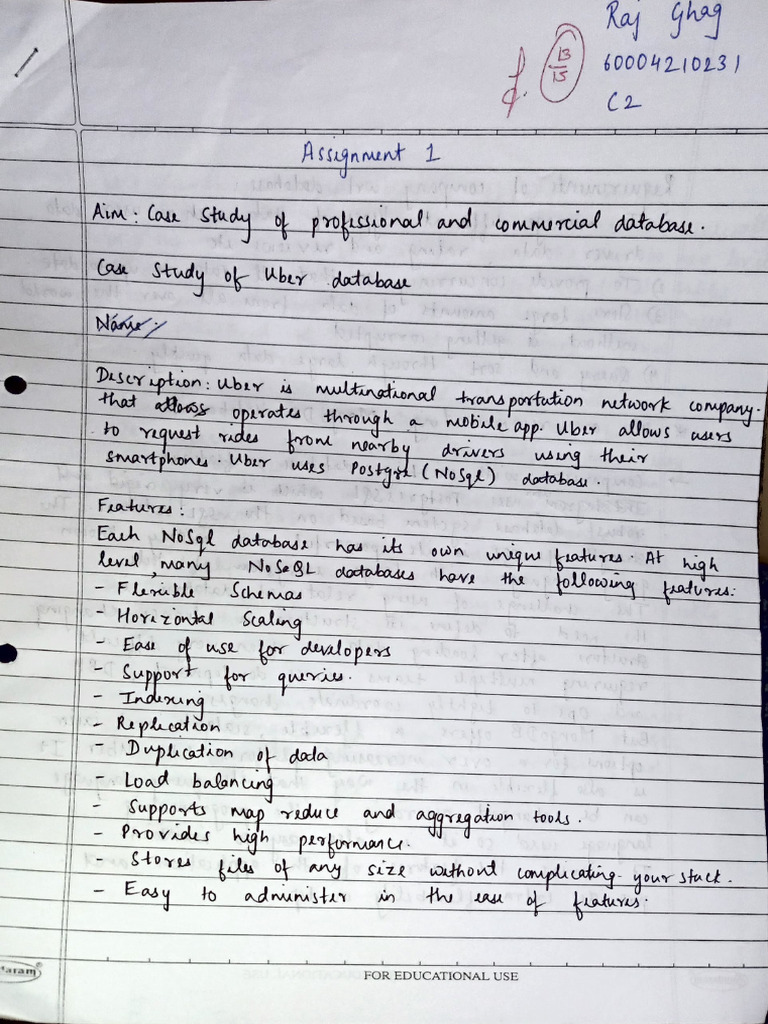 Raj Ghag
13
15
60004210231
C2
Assignment 1
Aim: Case Study of profissional and commercial database.
Case Study of Uber database
Name:
Description: Uber is multinational transportation network company.
that allows operates through a mobile app. Uber allows users
to request rides from nearby drivers using their
smartphones. Uber uses Postgre (NoSql) database.
Features:
Each NoSql database has its own unique features. At high
level, many NoSeQL databases have the following features:
- Flexible Schemas
- Horizontal Scaling
- Ease of use for developers
- Support for queries.
- Indexing
- Replication
- Duplication of data
- Load balancing
- Supports map reduce and aggregation tools.
- Provides high performance.
- Stores files of any size without complicating your stack.
- Easy to administer in the ease of features.
FOR EDUCATIONAL USE